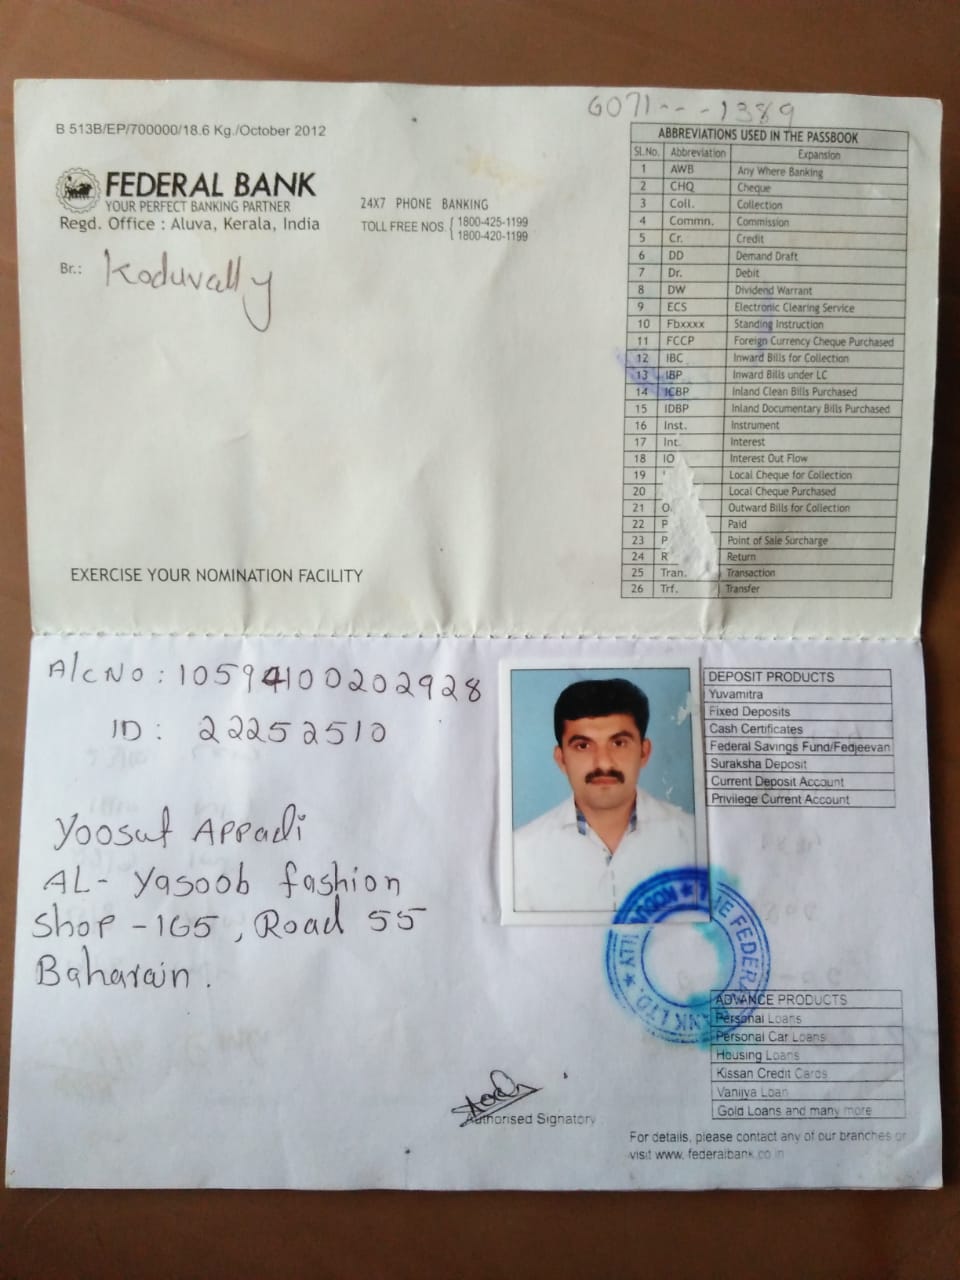 6071---1389
B 513B/EP/700000/18.6 Kg./October 2012
FEDERAL BANK
YOUR PERFECT BANKING PARTNER
Regd. Office : Aluva, Kerala, India
24X7 PHONE BANKING
TOLL FREE NOS. { 1800-425-1199
1800-420-1199
Br.: Koduvally
EXERCISE YOUR NOMINATION FACILITY
ABBREVIATIONS USED IN THE PASSBOOK
Sl.No. Abbreviation Expansion
1 AWB Any Where Banking
2 CHQ Cheque
3 Coll. Collection
4 Commn. Commission
5 Cr. Credit
6 DD Demand Draft
7 Dr. Debit
8 DW Dividend Warrant
9 ECS Electronic Clearing Service
10 Fbxxxx Standing Instruction
11 FCCP Foreign Currency Cheque Purchased
12 IBC Inward Bills for Collection
13 IBP Inward Bills under LC
14 ICBP Inland Clean Bills Purchased
15 IDBP Inland Documentary Bills Purchased
16 Inst. Instrument
17 Int. Interest
18 IO Interest Out Flow
19 Local Cheque for Collection
20 Local Cheque Purchased
21 Outward Bills for Collection
22 Paid
23 Point of Sale Surcharge
24 Return
25 Tran. Transaction
26 Trf. Transfer
A/c No : 10594100202928
ID : 22252510
Yoosuf Appadi
AL- Yasoob fashion
Shop -165, Road 55
Baharain.
DEPOSIT PRODUCTS
Yuvamitra
Fixed Deposits
Cash Certificates
Federal Savings Fund/Fedjeevan
Suraksha Deposit
Current Deposit Account
Privilege Current Account
THE FEDERAL BANK LTD.
ADVANCE PRODUCTS
Personal Loans
Personal Car Loans
Housing Loans
Kissan Credit Cards
Vanijya Loan
Gold Loans and many more
Authorised Signatory
For details, please contact any of our branches or
visit www. federalbank.co.in